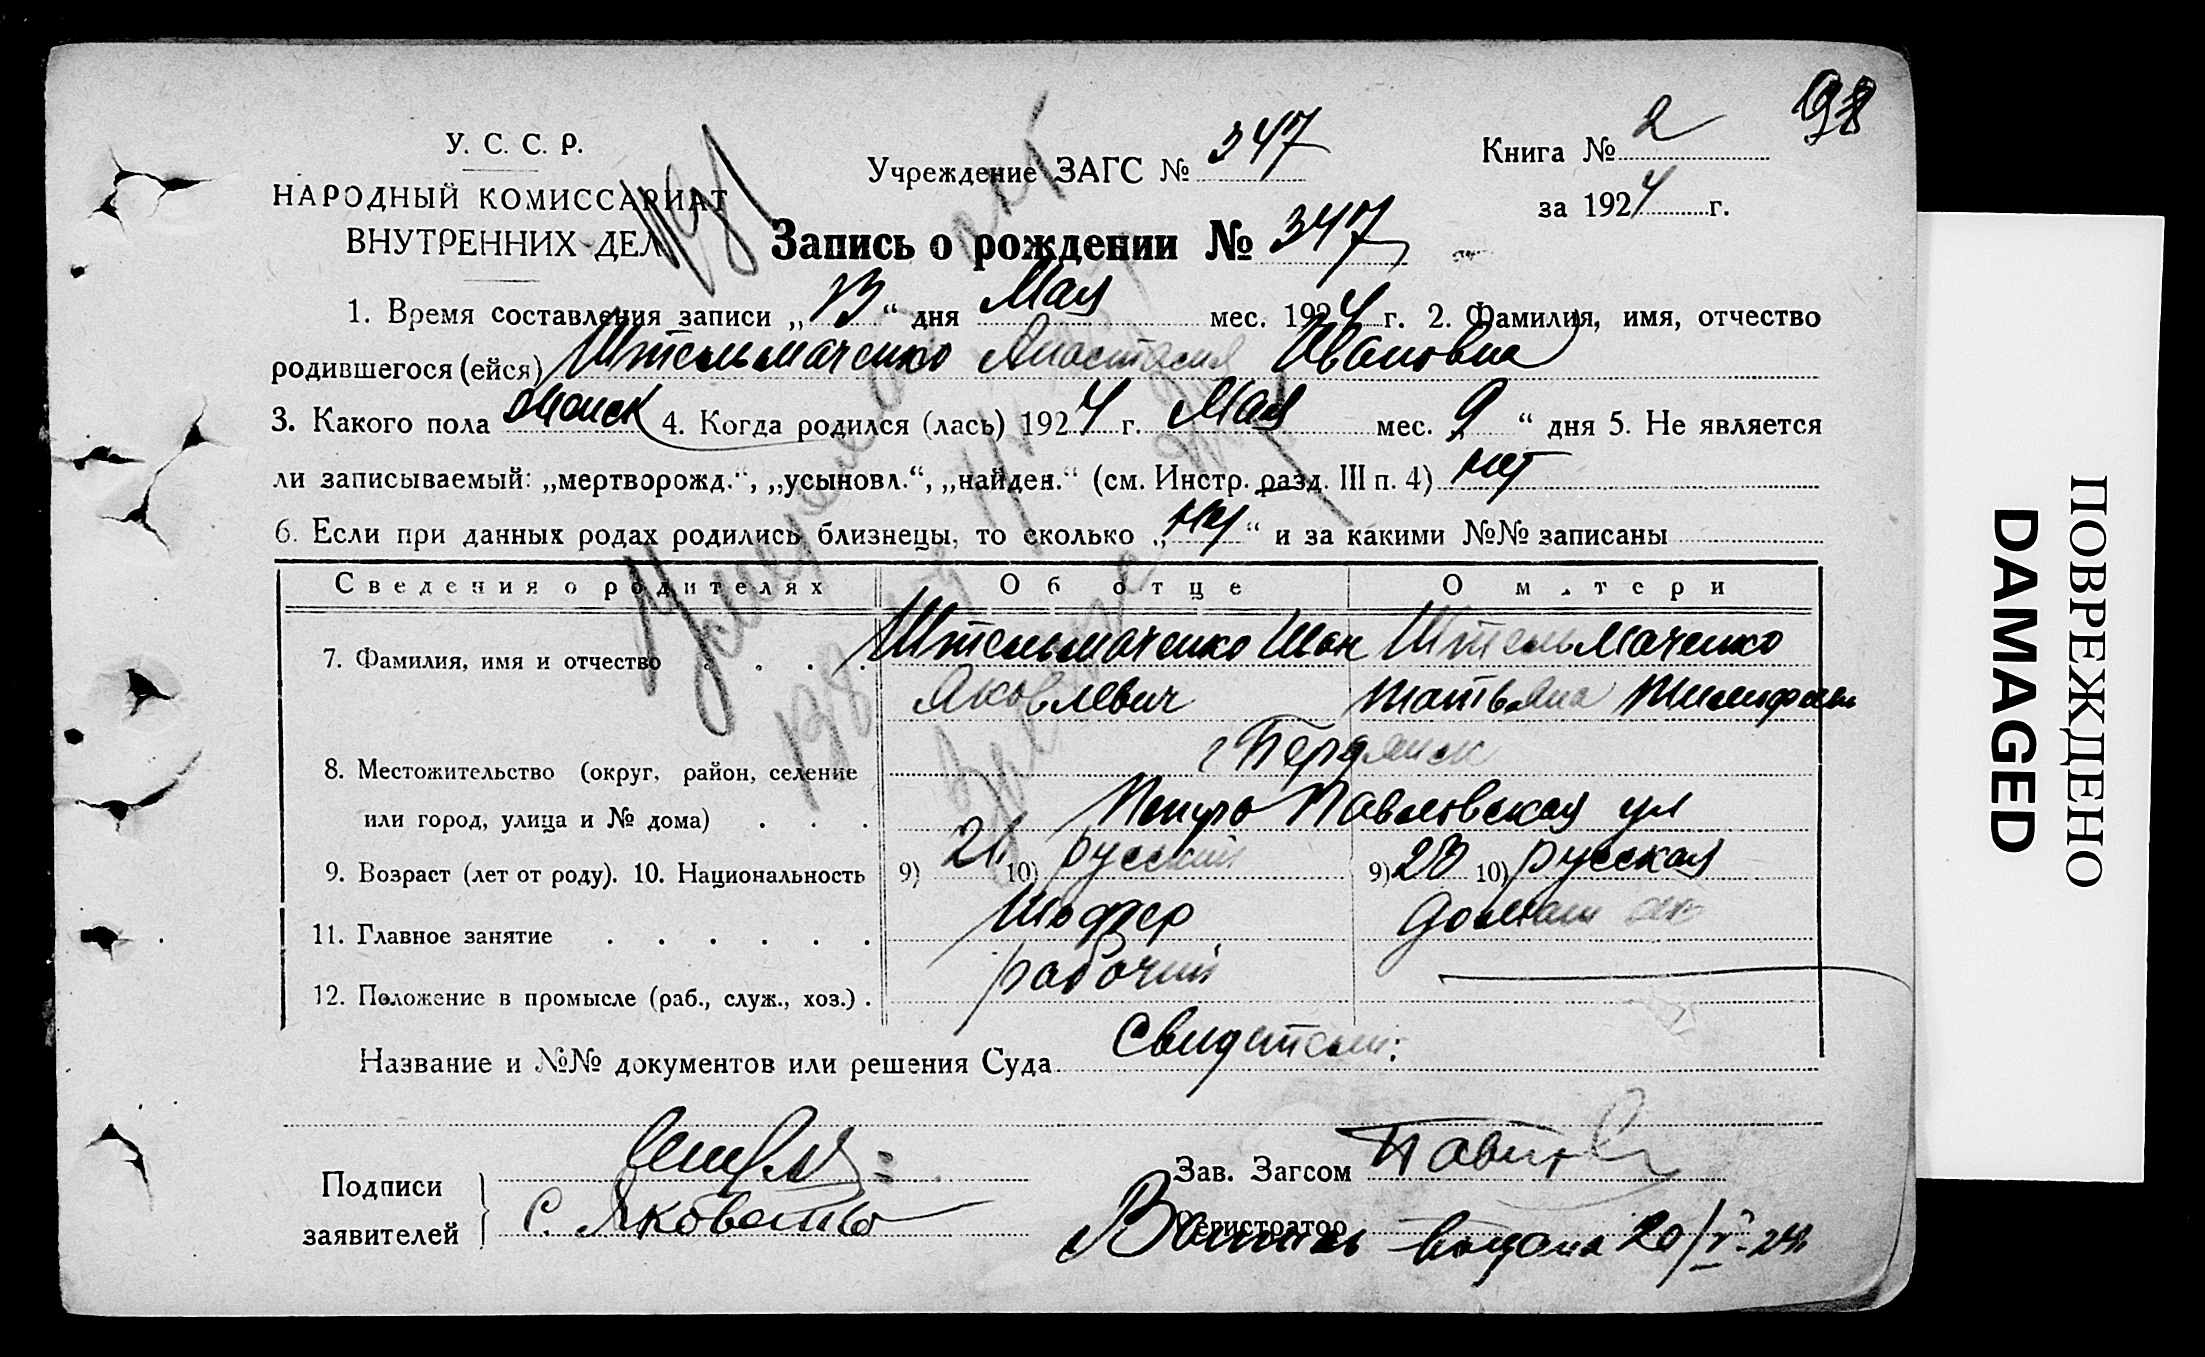 98
У. С. С. Р.
НАРОДНЫЙ КОМИССАРИАТ
ВНУТРЕННИХ ДЕЛ
Учреждение ЗАГС № 347
Книга № 2
за 1924 г.
Запись о рождении № 347
1. Время составления записи „13“ дня Мая мес. 1924 г. 2. Фамилия, имя, отчество
родившегося (ейся) Штельмаченко Анастасия Ивановна
3. Какого пола женск 4. Когда родился (лась) 1924 г. Мая мес. „9“ дня 5. Не является
ли записываемый: „мертворожд.“, „усыновл.“, „найден.“ (см. Инстр. разд. III п. 4) нет
6. Если при данных родах родились близнецы, то сколько „нет“ и за какими №№ записаны
Сведения о родителях Об отце О матери
7. Фамилия, имя и отчество Штельмаченко Иван Штельмаченко
Яковлевич Татьяна
8. Местожительство (округ, район, селение г Бердянск
или город, улица и № дома) Петро Павловская ул
9. Возраст (лет от роду). 10. Национальность 9) 10) русский 9) 10) русская
11. Главное занятие Шофер
12. Положение в промысле (раб., служ., хоз.) рабочий
Название и №№ документов или решения Суда
Подписи
заявителей
С. Яковенко
Зав. Загсом
Регистратор
Выпись выдана 20/V-24
ПОВРЕЖДЕНО
DAMAGED